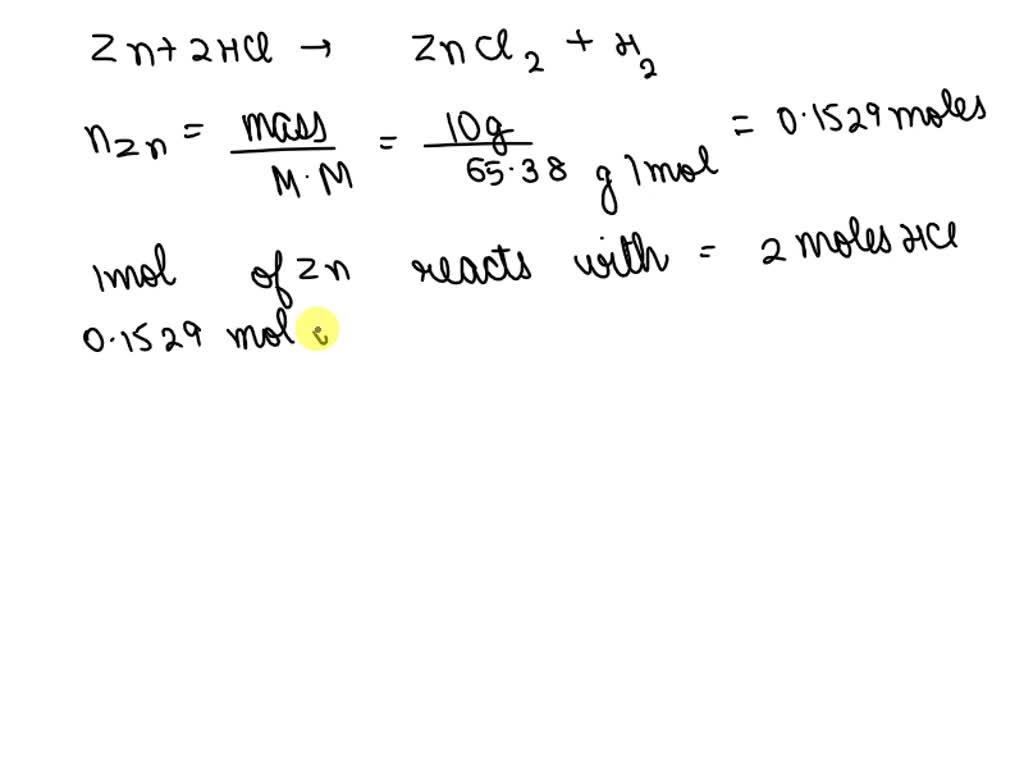 Zn + 2HCl → ZnCl2 + H2
nZn = mass / M.M = 10g / 65.38 g/mol = 0.1529 moles
1mol of Zn reacts with = 2 moles HCl
0.1529 mol